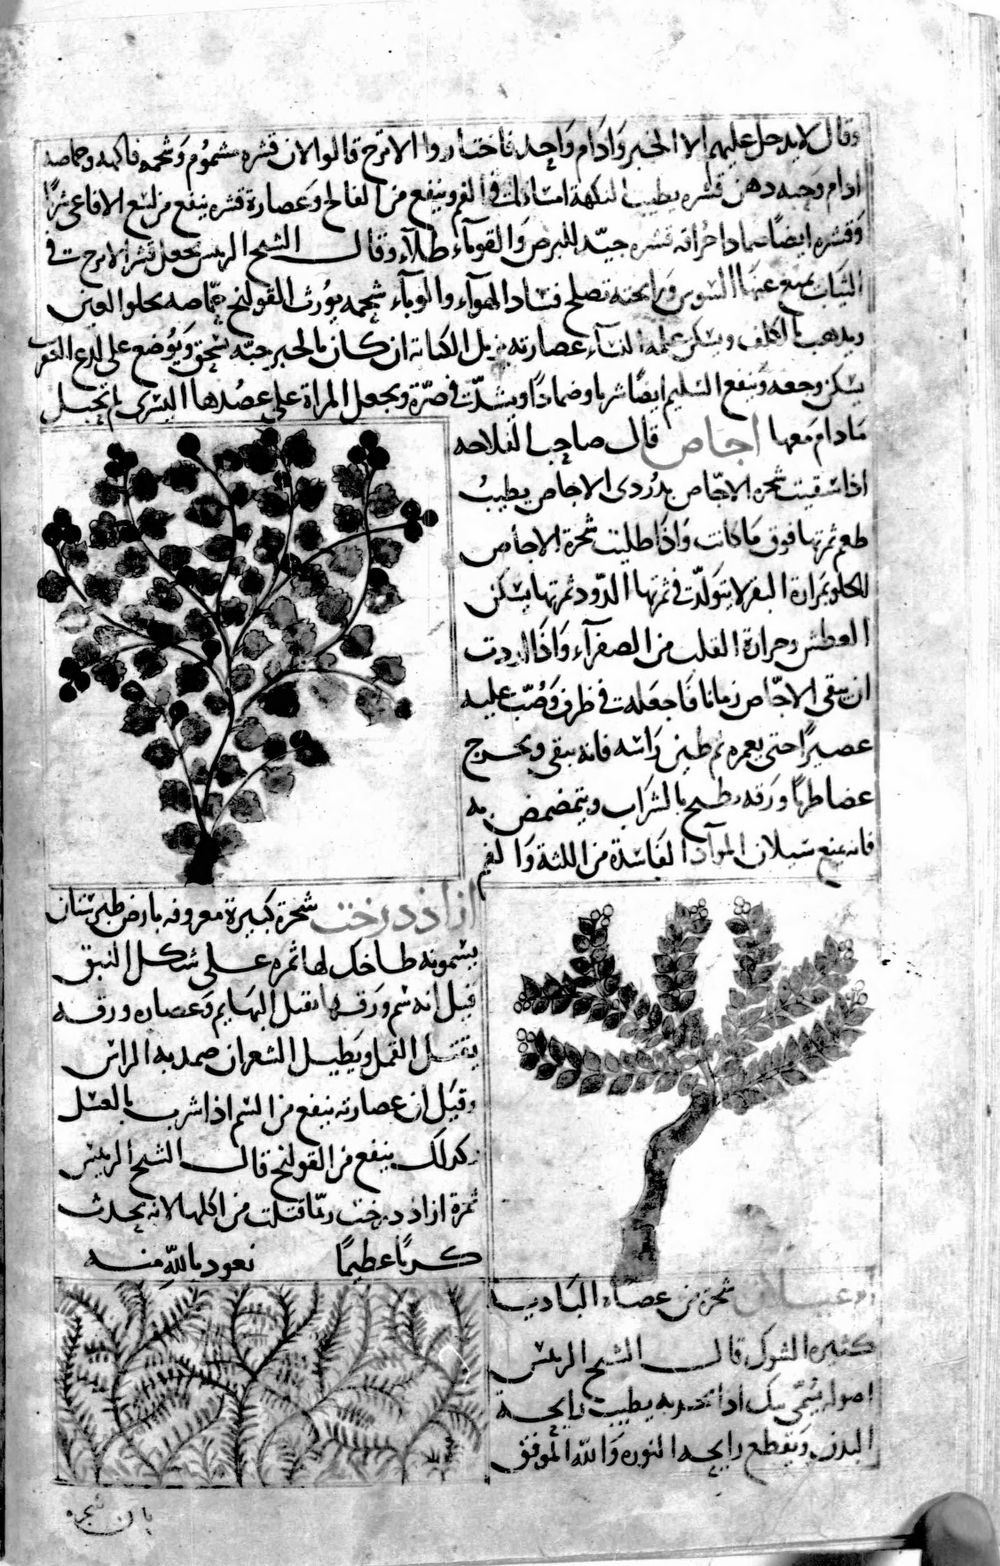 وقال لا يدخل عليهم الا الخبز وادام واحد فاختاروا الاترج قالوا لان قشره مشموم وشحمه فاكهه وحماضه
ادام وحبه دهن قشره يطيب النكهة امساكه في الفم وينفع من الفالج وعصارة قشره ينفع من لسع الافاعى شربًا
وقشره ايضًا ضمادا حراقة قشره جيّد للبرص والقوباء طلاء وقال الشيخ الرئيس يجعل قشر الاترج في
الثياب يمنع عنها السوس ورايحته تصلح فساد الهواء والوباء شحمه يورث القولنج حماضه يجلوا العين
ويذهب بالكلف ويسكن غلمة النساء عصارته يزيل الكتابة ان كان بالحبر حبّه يسحق ويوضع على لدغ العقرب
يسكن وجعه وينفع السليم ايضًا شربا وضمادًا ويشدّ في صرّة ويجعل المراة على عضدها اليسرى لم تحبل
مادام معها اجاص قال صاحب الفلاحه
اذا سقيت شجره الاجّاص بدُردى الاجاص يطيبُ
طعم ثمرتها فوق ما كانت واذا طليت شجرة الاجاص
الحلو بمرارة البقر لا يتولّد في ثمرتها الدّود ثمرتها يسكن
العطش وحرارة القلب من الصفرآء واذا اردت
ان يبقى الاجّاص زمانا فاجعله في ظرف وصُبّ عليه
عصيرًا حتى يغمره ثم طين راسه فانه يبقى ويخرج
غضا طريًا ورقه يطبخ بالشراب ويتمضمض به
فانه يمنع سيلان الموآد الفاسدة من اللثة والفم
ازاددرخت شجرة كبيرة معروفه بارض طبرستان
يسمونه طاخك لها ثمره على شكل النبق
قيل انه سم ورقها يقتل البهايم وعصاره ورقه
يقتل القمل ويطيل الشعر ان ضمد به الراس
وقيل ان عصارته ينفع من السم اذا شرب بالعسل
وكذلك ينفع من القولنج قال الشيخ الرئيس
ثمرة ازاد درخت ربّما قتلت من اكلها لانه يحدث
كربًا عظيمًا نعوذ بالله منه
ام غيلان شجرة من عضاه البادية
كثيره الشوك قال الشيخ الرئيس
اذا بخر به يطيب رايحة
البدن ويقطع رايحه النوره والله الموفق
بان شجره